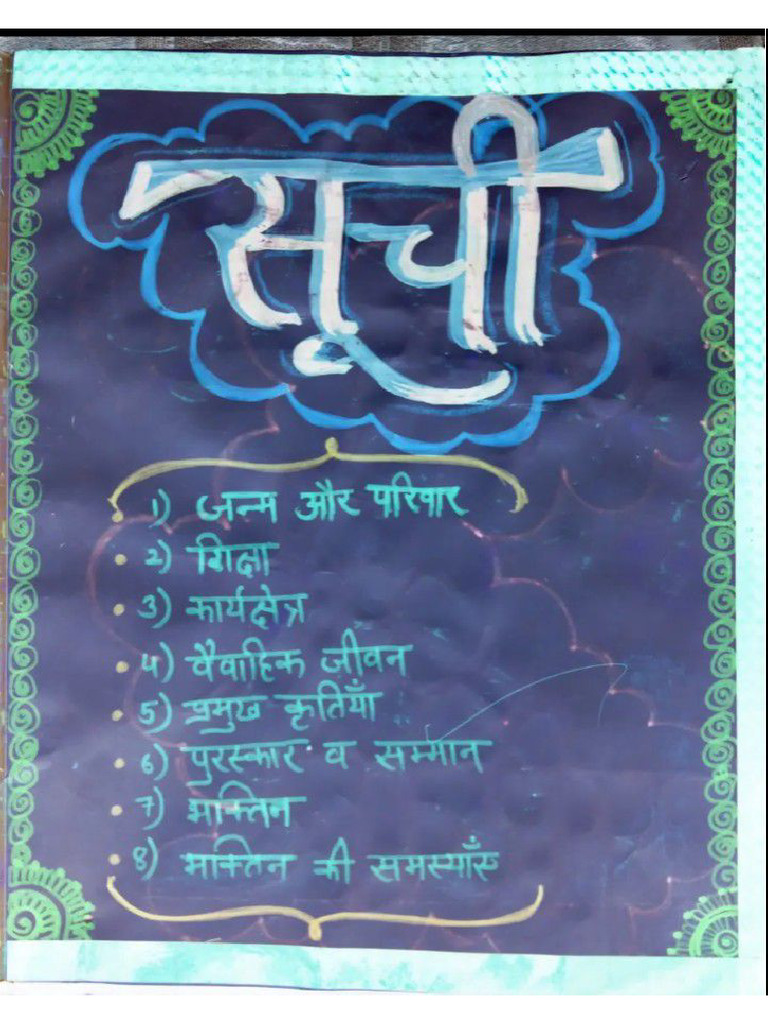 सूची
1) जन्म और परिवार
2) शिक्षा
3) कार्यक्षेत्र
4) वैवाहिक जीवन
5) प्रमुख कृतियाँ
6) पुरस्कार व सम्मान
7) भक्तिन
8) भक्तिन की समस्याँए